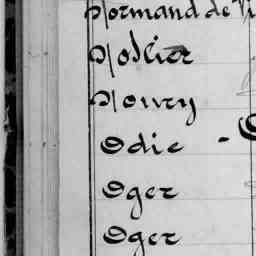 Normand de Vi
Noslier
Noury
Odie -
Oger
Oger